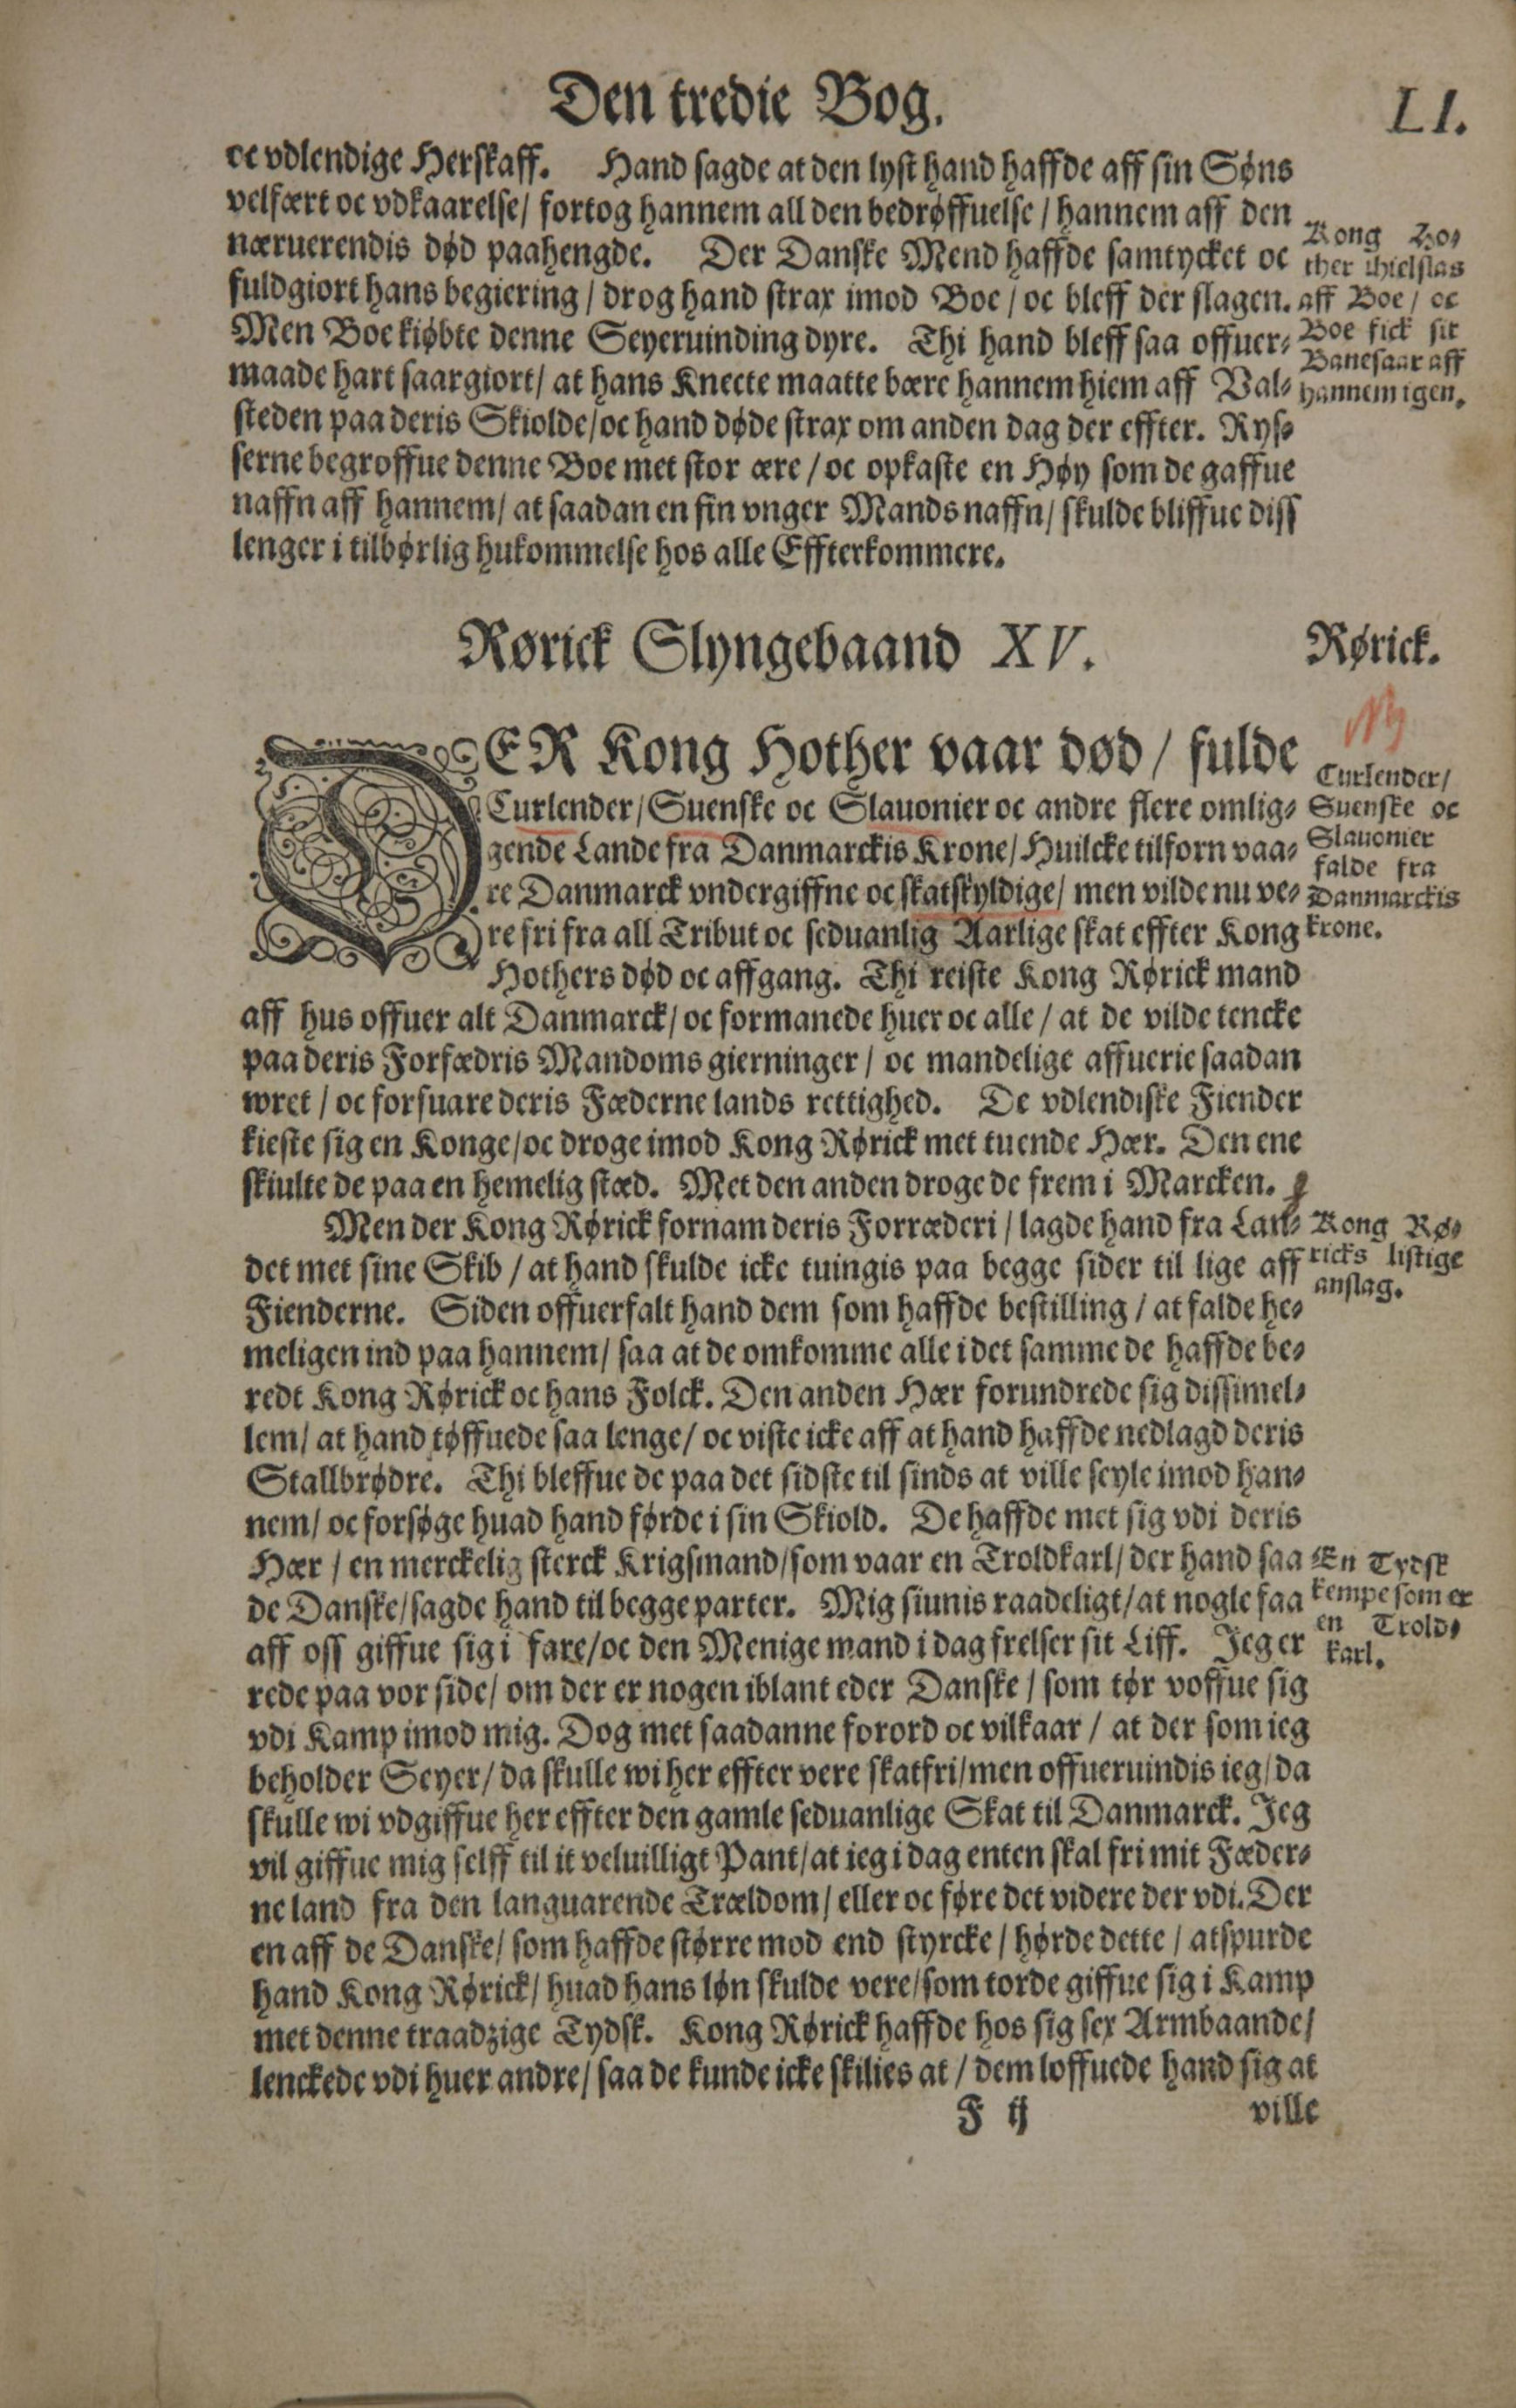 Den tredie Bog.
LI.
oc vdlendige Herskaff. Hand sagde at den lyst hand haffde aff sin Søns
velfært oc vdkaarelse/ fortog hannem all den bedrøffuelse / hannem aff den
næruerendis død paahengde. Der Danske Mend haffde samtycket oc
fuldgiort hans begiering / drog hand strax imod Boe / oc bleff der slagen.
Men Boe kiøbte denne Seyeruinding dyre. Thi hand bleff saa offuer⸗
maade hart saargiort/ at hans Knecte maatte bære hannem hiem aff Val⸗
steden paa deris Skiolde/ oc hand døde strax om anden dag der effter. Rys⸗
serne begroffue denne Boe met stor ære / oc opkaste en Høy som de gaffue
naffn aff hannem/ at saadan en fin vnger Mands naffn/ skulde bliffue diss
lenger i tilbørlig hukommelse hos alle Effterkommere.
Kong Ho⸗
ther ihielslas
aff Boe / oc
Boe fick sit
Banesaar aff
hannem igen.
Rørick Slyngebaand XV.
Rørick.
DER Kong Hother vaar død / fulde
Curlender/ Suenske oc Slauonier oc andre flere omlig⸗
gende Lande fra Danmarckis Krone/ Huilcke tilforn vaa⸗
re Danmarck vndergiffne oc skatskyldige/ men vilde nu ve⸗
re fri fra all Tribut oc seduanlig Aarlige skat effter Kong
Hothers død oc affgang. Thi reiste Kong Rørick mand
Curlender/
Suenske oc
Slauonier
falde fra
Danmarckis
krone.
aff hus offuer alt Danmarck/ oc formanede huer oc alle / at de vilde tencke
paa deris Forfædris Mandoms gierninger / oc mandelige affuerie saadan
wret / oc forsuare deris Fæderne lands rettighed. De vdlendiske Fiender
kieste sig en Konge/ oc droge imod Kong Rørick met tuende Hær. Den ene
skiulte de paa en hemelig stæd. Met den anden droge de frem i Marcken.
Men der Kong Rørick fornam deris Forræderi / lagde hand fra Lan⸗
det met sine Skib / at hand skulde icke tuingis paa begge sider til lige aff
Fienderne. Siden offuerfalt hand dem som haffde bestilling / at falde he⸗
meligen ind paa hannem/ saa at de omkomme alle i det samme de haffde be⸗
redt Kong Rørick oc hans Folck. Den anden Hær forundrede sig dissimel⸗
lem/ at hand tøffuede saa lenge/ oc viste icke aff at hand haffde nedlagd deris
Stallbrødre. Thi bleffue de paa det sidste til sinds at ville seyle imod han⸗
nem/ oc forsøge huad hand førde i sin Skiold. De haffde met sig vdi deris
Hær / en merckelig sterck Krigsmand/ som vaar en Troldkarl/ der hand saa
de Danske/ sagde hand til begge parter. Mig siunis raadeligt/ at nogle faa
aff oss giffue sig i fare/ oc den Menige mand i dag frelser sit Liff. Jeg er
rede paa vor side/ om der er nogen iblant eder Danske / som tør voffue sig
vdi Kamp imod mig. Dog met saadanne forord oc vilkaar / at der som ieg
beholder Seyer/ da skulle wi her effter vere skatfri/ men offueruindis ieg/ da
skulle wi vdgiffue her effter den gamle seduanlige Skat til Danmarck. Jeg
vil giffue mig selff til it veluilligt Pant/ at ieg i dag enten skal fri mit Fæder⸗
ne land fra den languarende Trældom/ eller oc føre det videre der vdi. Der
en aff de Danske/ som haffde større mod end styrcke / hørde dette / atspurde
hand Kong Rørick/ huad hans løn skulde vere/ som torde giffue sig i Kamp
met denne traadzige Tydsk. Kong Rørick haffde hos sig sex Armbaande/
lenckede vdi huer andre/ saa de kunde icke skilies at / dem loffuede hand sig at
Kong Rø⸗
ricks listige
anslag.
En Tydsk
kempe som er
en Trold⸗
karl.
F ij
ville